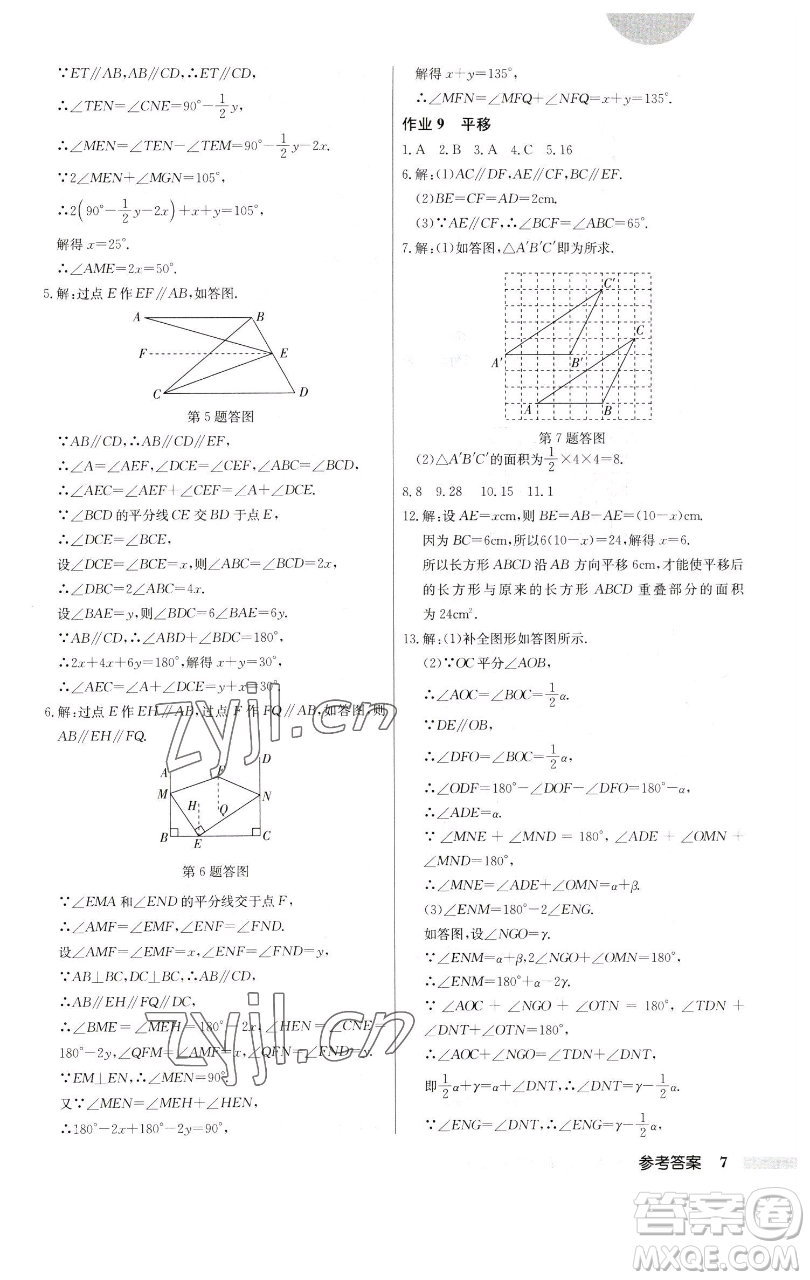 ∵ET∥AB,AB∥CD,∴ET∥CD,
∴∠TEN=∠CNE=90°-1/2y,
∴∠MEN=∠TEN-∠TEM=90°-1/2y-2x.
∵2∠MEN+∠MGN=105°,
∴2(90°-1/2y-2x)+x+y=105°,
解得x=25°.
∴∠AME=2x=50°.
5.解:过点E作EF∥AB,如答图.
A B
F E
C D
第5题答图
∵AB∥CD,∴AB∥CD∥EF,
∴∠A=∠AEF,∠DCE=∠CEF,∠ABC=∠BCD.
∴∠AEC=∠AEF+∠CEF=∠A+∠DCE.
∵∠BCD的平分线CE交BD于点E,
∴∠DCE=∠BCE,
设∠DCE=∠BCE=x,则∠ABC=∠BCD=2x,
∴∠DBC=2∠ABC=4x.
设∠BAE=y,则∠BDC=6∠BAE=6y.
∵AB∥CD,∴∠ABD+∠BDC=180°,
∴2x+4x+6y=180°,解得x+y=30°,
∴∠AEC=∠A+∠DCE=x+y=30°.
6.解:过点E作EH∥AB,过点F作FQ∥AB,如答图,则
AB∥EH∥FQ.
A F D
M H Q N
B E C
第6题答图
∵∠EMA和∠END的平分线交于点F,
∴∠AMF=∠EMF,∠ENF=∠FND.
设∠AMF=∠EMF=x,∠ENF=∠FND=y,
∵AB⊥BC,DC⊥BC,∴AB∥DC,
∴AB∥EH∥FQ∥DC,
∴∠BME=∠MEH=180°-2x,∠HEN=∠CNE=
180°-2y,∠QFM=∠AMF=x,∠NFQ=∠FND=y.
∵EM⊥EN,∴∠MEN=90°.
又∵∠MEN=∠MEH+∠HEN,
∴180°-2x+180°-2y=90°,
解得x+y=135°,
∴∠MFN=∠MFQ+∠NFQ=x+y=135°.
作业9 平移
1.A 2.B 3.A 4.C 5.16
6.解:(1)AC∥DF,AE∥CF,BC∥EF.
(2)BE=CF=AD=2cm.
(3)∵AE∥CF,∴∠BCF=∠ABC=65°.
7.解:(1)如答图,△A′B′C′即为所求.
C′
C
A′ B′
A B
第7题答图
(2)△A′B′C′的面积为1/2×4×4=8.
8.8 9.28 10.15 11.1
12.解:设AE=xcm,则BE=AB-AE=(10-x)cm.
因为BC=6cm,所以6(10-x)=24,解得x=6.
所以长方形ABCD沿AB方向平移6cm,才能使平移后
的长方形与原来的长方形ABCD重叠部分的面积
为24cm².
13.解:(1)补全图形如答图所示.
(2)∵OC平分∠AOB,
∴∠AOC=∠BOC=1/2α.
∵DE∥OB,
∴∠DFO=∠BOC=1/2α,
∴∠ODF=180°-∠DOF-∠DFO=180°-α,
∴∠ADE=α.
∵∠MNE+∠MND=180°,∠ADE+∠OMN+
∠MND=180°,
∴∠MNE=∠ADE+∠OMN=α+β.
(3)∠ENM=180°-2∠ENG.
如答图,设∠NGO=γ.
∵∠ENM=α+β,2∠NGO+∠OMN=180°,
∴∠ENM=α+180°-2γ.
∵∠AOC+∠NGO+∠OTN=180°,∠TDN+
∠DNT+∠OTN=180°,
∴∠AOC+∠NGO=∠TDN+∠DNT,
即1/2α+γ=α+∠DNT,∴∠DNT=γ-1/2α.
∵∠ENG=∠DNT,∴∠ENG=γ-1/2α.
参考答案 7
zyjl.cn
zyjl.cn
答案卷
MXQE.COM